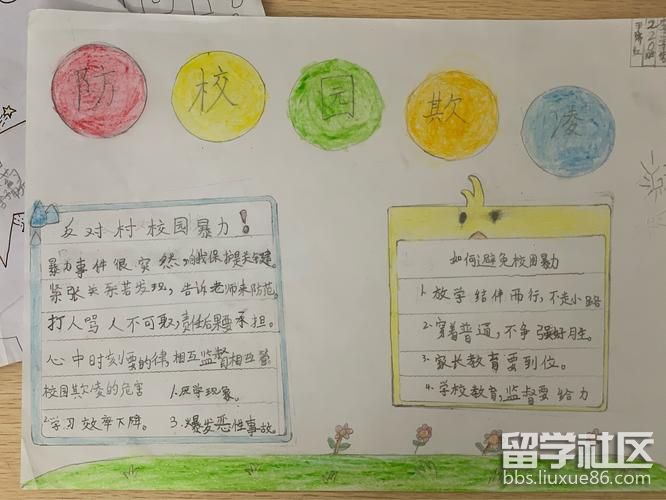 防校园欺凌
反对村校园暴力！
暴力事件很突然，自我保护是关键。
紧张关系若发现，告诉老师来防范。
打人骂人不可取，责任后果要承担。
心中时刻要的律相互监督相互管
校园欺凌的危害 1.厌学现象。
2.学习效率下降。 3.爆发恶性事故。
如何避免校园暴力
1.放学结伴而行，不走小路
2.穿着普通，不争强好胜。
3.家长教育要到位。
4.学校教育，监督要给力
留学社区
bbs.liuxue86.com